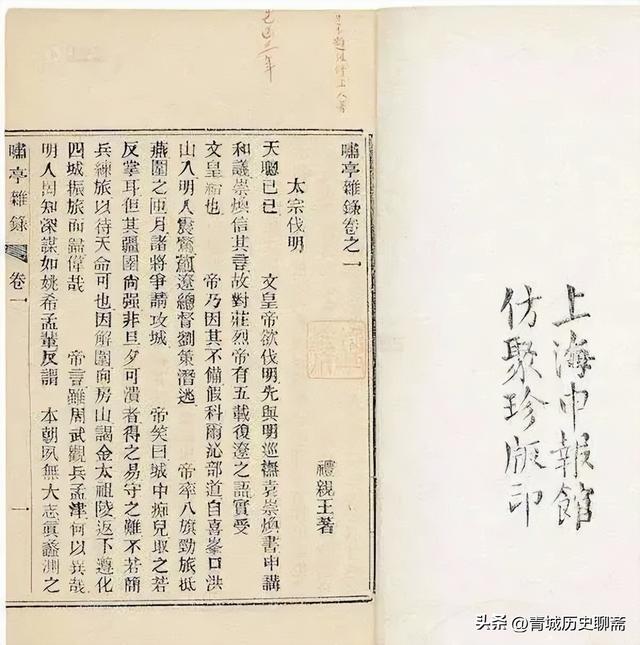 上海申報館
仿聚珍版印
嘯亭雜錄卷之一
禮親王著
太宗伐明
天聰已巳 文皇帝欲伐明先與明巡撫袁崇煥書申講
和議崇煥信其言故對莊烈帝有五載復遼之語實受
文皇紿也 帝乃因其不備假科爾沁部道自喜峯口洪
山入明人震驚薊遼總督劉策潛逃 帝率八旗勁旅抵
燕圍之匝月諸將爭請攻城 帝笑曰城中痴兒取之若
反掌耳但其疆圉尚强非旦夕可潰者得之易守之難不若簡
兵練旅以待天命可也因解圍向房山謁金太祖陵返下遵化
四城振旅而歸偉哉 帝言雖周武觀兵孟津何以異哉
明人罔知深謀如姚希孟輩反謂 本朝夙無大志眞蠡測之
嘯亭雜錄 卷一 一
头条 @青城历史聊斋